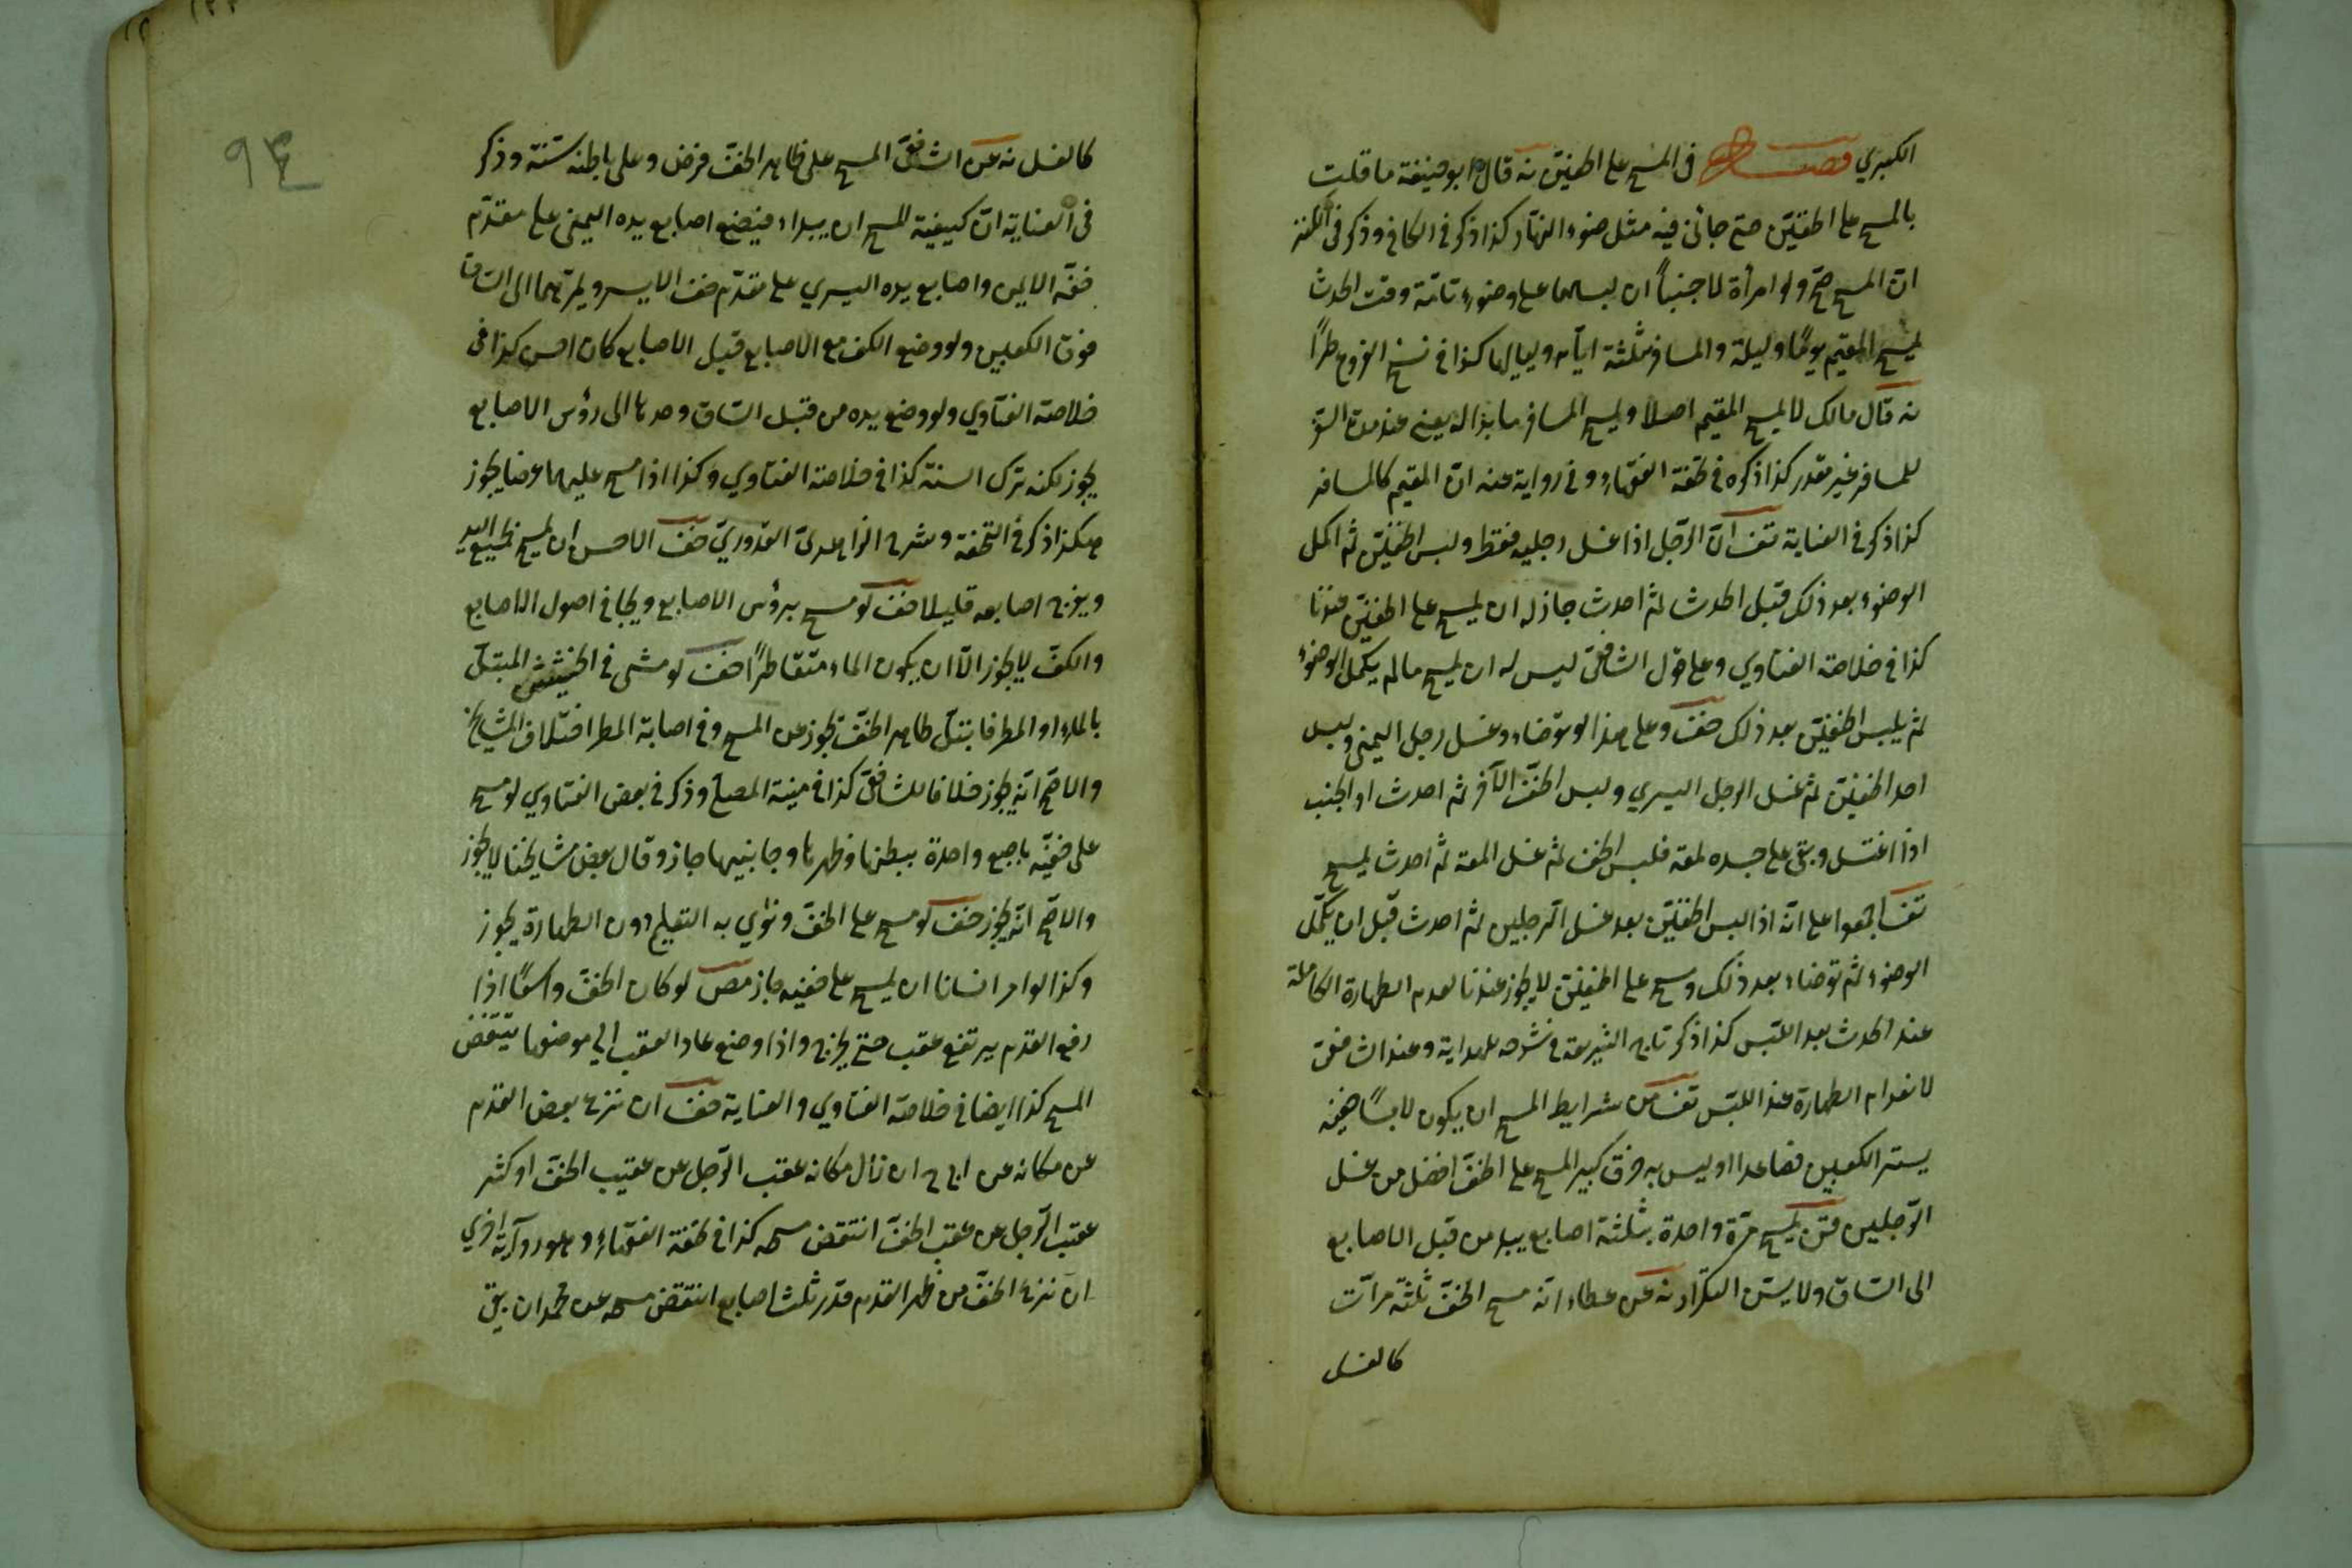 الكبيري فصل في المسح على الخفين نه قال ابو حنيفة ما قلت
بالمسح على الخفين حتى جائني فيه مثل ضوء النهار كذا ذكر في الكافي وذكر في الكنز
ان المسح صح ولو امرأة لا جنبا ان لبسهما على وضوء تامة وقت الحدث
يمسح المقيم يوما وليلة والمسافر ثلثة ايام ولياليها كذا في نسخ الفروع طرا
نه قال مالك لا يمسح المقيم اصلا ويمسح المسافر ما بدا له يعني عنده مدة السفر
للمسافر غير مقدر كذا ذكره في تحفة الفقهاء وفي رواية عنه ان المقيم كالمسافر
كذا ذكر في العناية تف ان الرجل اذا غسل رجليه فقط ولبس الخفين ثم اكمل
الوضوء بعد ذلك قبل الحدث ثم احدث جاز له ان يمسح على الخفين عندنا
كذا في خلاصة الفتاوي وعلى قول الشافعي ليس له ان يمسح ما لم يكمل الوضوء
ثم يلبس الخفين بعد ذلك خف وعلى هذا لو توضاء وغسل رجل اليمنى ولبس
احد الخفين ثم غسل الرجل اليسري ولبس الخف الآخر ثم احدث او الجنب
اذا اغتسل وبقي على جسده لمعة فلبس الخف ثم غسل المعة ثم احدث يمسح
تف اجمعوا على انه اذا لبس الخفين بعد غسل الرجلين ثم احدث قبل ان يكمل
الوضوء ثم توضاء بعد ذلك ومسح على الخفين لا يجوز عندنا لعدم الطهارة الكاملة
عند الحدث بعد اللبس كذا ذكر تاج الشريعة في شرحه للهداية وعند الشافعي
لانعدام الطهارة عند اللبس تف من شرايط المسح ان يكون لابسا خفيه
يستر الكعبين فصاعدا وليس به خرق كبير المسح على الخف افضل من غسل
الرجلين قن يمسح مرة واحدة بثلثة اصابع يبدء من قبل الاصابع
الى الساق ولا يسن التكرار نه عن عطاء انه مسح الخف ثلثة مرات
كالغسل
٩٣
كالغسل نه عن الشافعي المسح على ظاهر الخف فرض وعلى باطنه سنة وذكر
في العناية ان كيفية المسح ان يبداء فيضع اصابع يده اليمنى على مقدم
خفه الايمن واصابع يده اليسري على مقدم خف الايسر ويمرهما الى الساق
فوق الكعبين ولو وضع الكف مع الاصابع قبل الاصابع كان احسن كذا في
خلاصة الفتاوي ولو وضع يده من قبل الساق ومدها الى رؤس الاصابع
يجوز لكنه ترك السنة كذا في خلاصة الفتاوي وكذا اذا مسح عليهما عرضا يجوز
هكذا ذكر في التحفة وشرح الزاهدي القدوري خف الاحسن ان يمسح بجميع اليد
ويفرج اصابعه قليلا خف لو مسح برؤس الاصابع ويجافي اصول الاصابع
والكف لا يجوز الا ان يكون الماء متقاطرا خف لو مشى في الحشيش المبتل
بالماء او المطر فابتل ظاهر الخف يجوز عن المسح وفي اصابة المطر اختلاف المشايخ
والاصح انه يجوز خلافا للشافعي كذا في منية المصلي وذكر في بعض الفتاوي لو مسح
على خفيه باصبع واحدة ببطنها وظهرها وجانبيها جاز وقال بعض مشايخنا لا يجوز
والاصح انه يجوز خف لو مسح على الخف ونوي به التعليم دون الطهارة يجوز
وكذا لو امر انسانا ان يمسح على خفيه جاز مص لو كان الخف واسعا اذا
رفع القدم يرتفع عقب حتى يخرج واذا وضع عاد العقب الى موضعها ينتقض
المسح كذا ايضا في خلاصة الفتاوي والعناية خف ان نزع بعض القدم
عن مكانه عن ان زال مكانه عقب الرجل عن عقيب الخف او كثر
عقب الرجل عن عقب الخف انتقض مسحه كذا في تحفة الفقهاء وهو رواية اخري
ان نزع الخف من ظهر القدم قدر ثلث اصابع انتقض مسحه عن محمد ان بقي